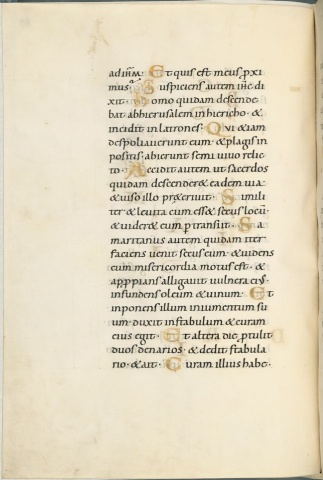 ad ihm̅. Et quis est meus p̱xi
mus. Suspiciens autem ih̅e di
xit. Homo quidam descende
bat abhierusalem inhiericho. &
incidit inlatrones. Qui &iam
despoliaverunt eum. & plagis in
positis. abierunt semi vivo relic
to. Accidit autem ut sacerdos
quidam descender& eadem via.
& viso illo p̱r&eriit. Simili
ter & levita cum ess& secus locū.
& vider& eum p̱transiit. Sa
maritanus autem quidam iter
faciens venit secus eum. & videns
eum misericordia motus est. &
app̱pians alligavit vulnera eiꝰ.
infundens oleum & vinum. Et
inponens illum iniumentum su
um duxit instabulum & curam
eius egit. Et altera die p̱tulit
duos denarios. & dedit stabula
rio. & ait. Curam illius habe.